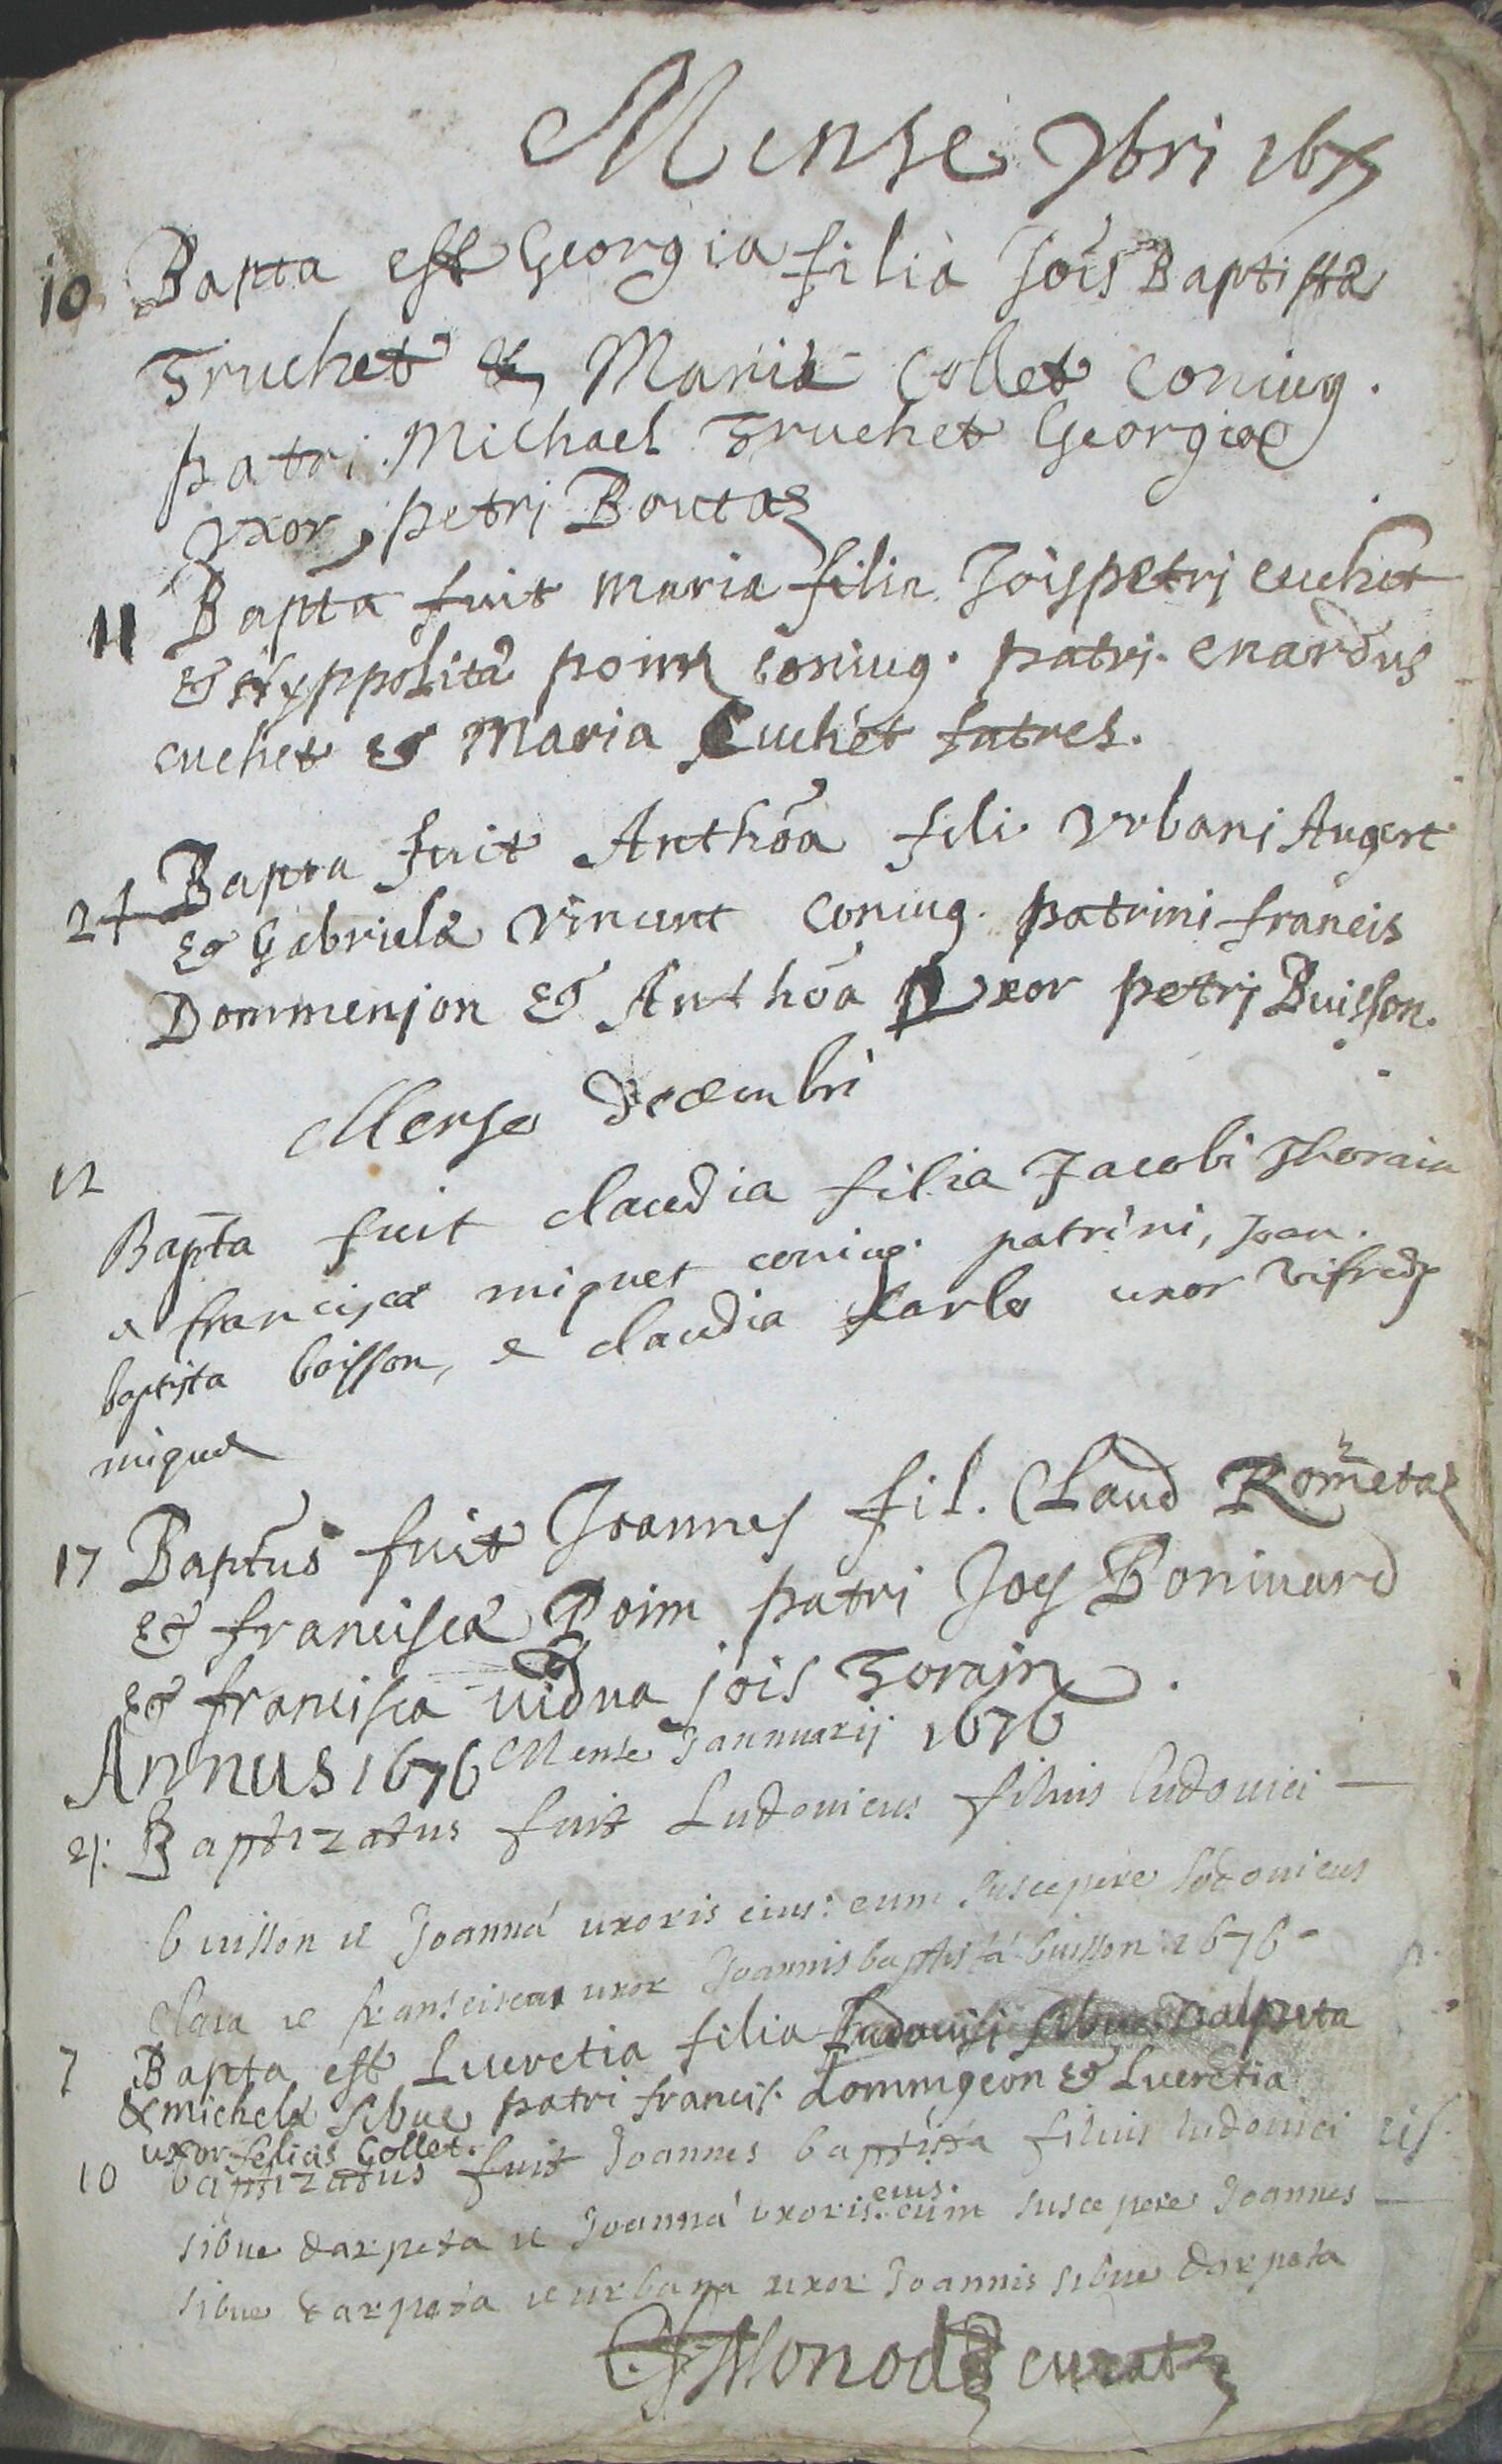 Mense 9bri 1675
10 Bapta est Georgia filia Jois Baptistæ
Truchet & Mariæ Collet coniug.
patri. Michael Truchet Georgia
vxor petri Boutaz
11 Bapta fuit maria filia Joispetri cuchet
& Hyppolitæ poim coniug. patri. enardus
cuchet & Maria Cuchet fratres.
24 Bapta fuit Anthoa fili vrbani Augert
& Gabrielæ vincent coniug. patrini francis
Dommenjon & Anthoa Vxor petri Buisson.
Mense Decembri
12
Bapta fuit claudia filia Jacobi Thorain
& franciscæ miquet coniug. patrini, Joan.
baptista boisson, & claudia karlo uxor
miquel
17 Baptus fuit Joannes fil. Claud Rometaz
& franciscæ Poim patri Joes Boniuard
& francisca uidua jois Torain.
Annus 1676 Mense Januarij 1676
Baptizatus fuit Ludouicus filius ludouici
buisson et Joannæ uxoris eius: eum suscepere lodouicus
clara et francisca uxor Joannis baptistæ buisson 1676
7 Bapta est Lucretia filia Ludouisi sibue Dalpeta
& michelæ sibue patri francis. Dommgeon & Lucretia
uxor felicis Collet.
10 baptizatus fuit Joannes baptista filius ludouici
sibue darpeta et Joannæ uxoris eius. eum suscepere Joannes
sibue darpeta et urbana uxor Joannis sibue darpeta
Monod curatz